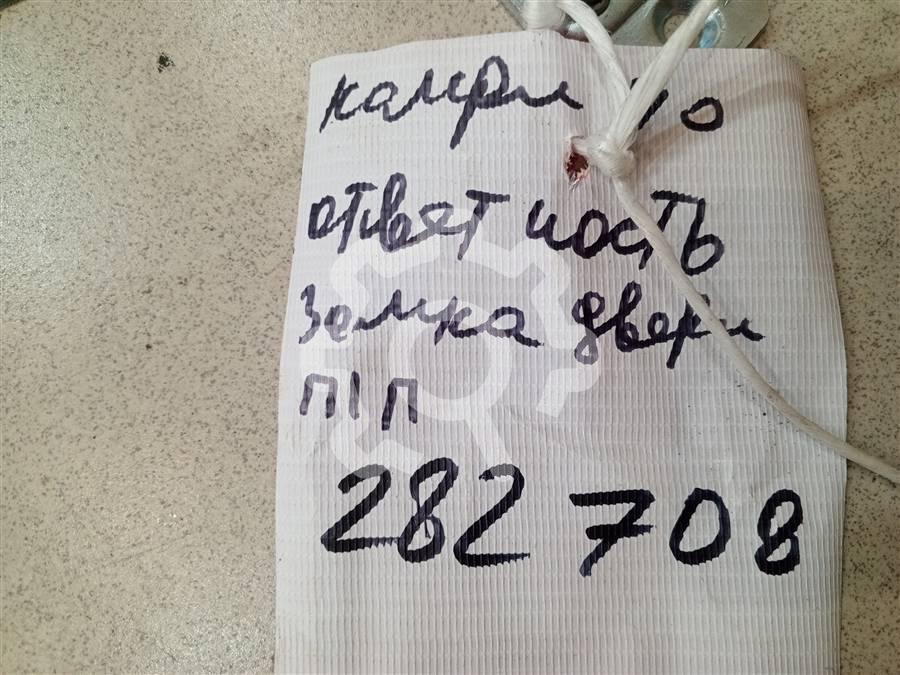 камри 40
ответ ность
замка двери
П/П
282708